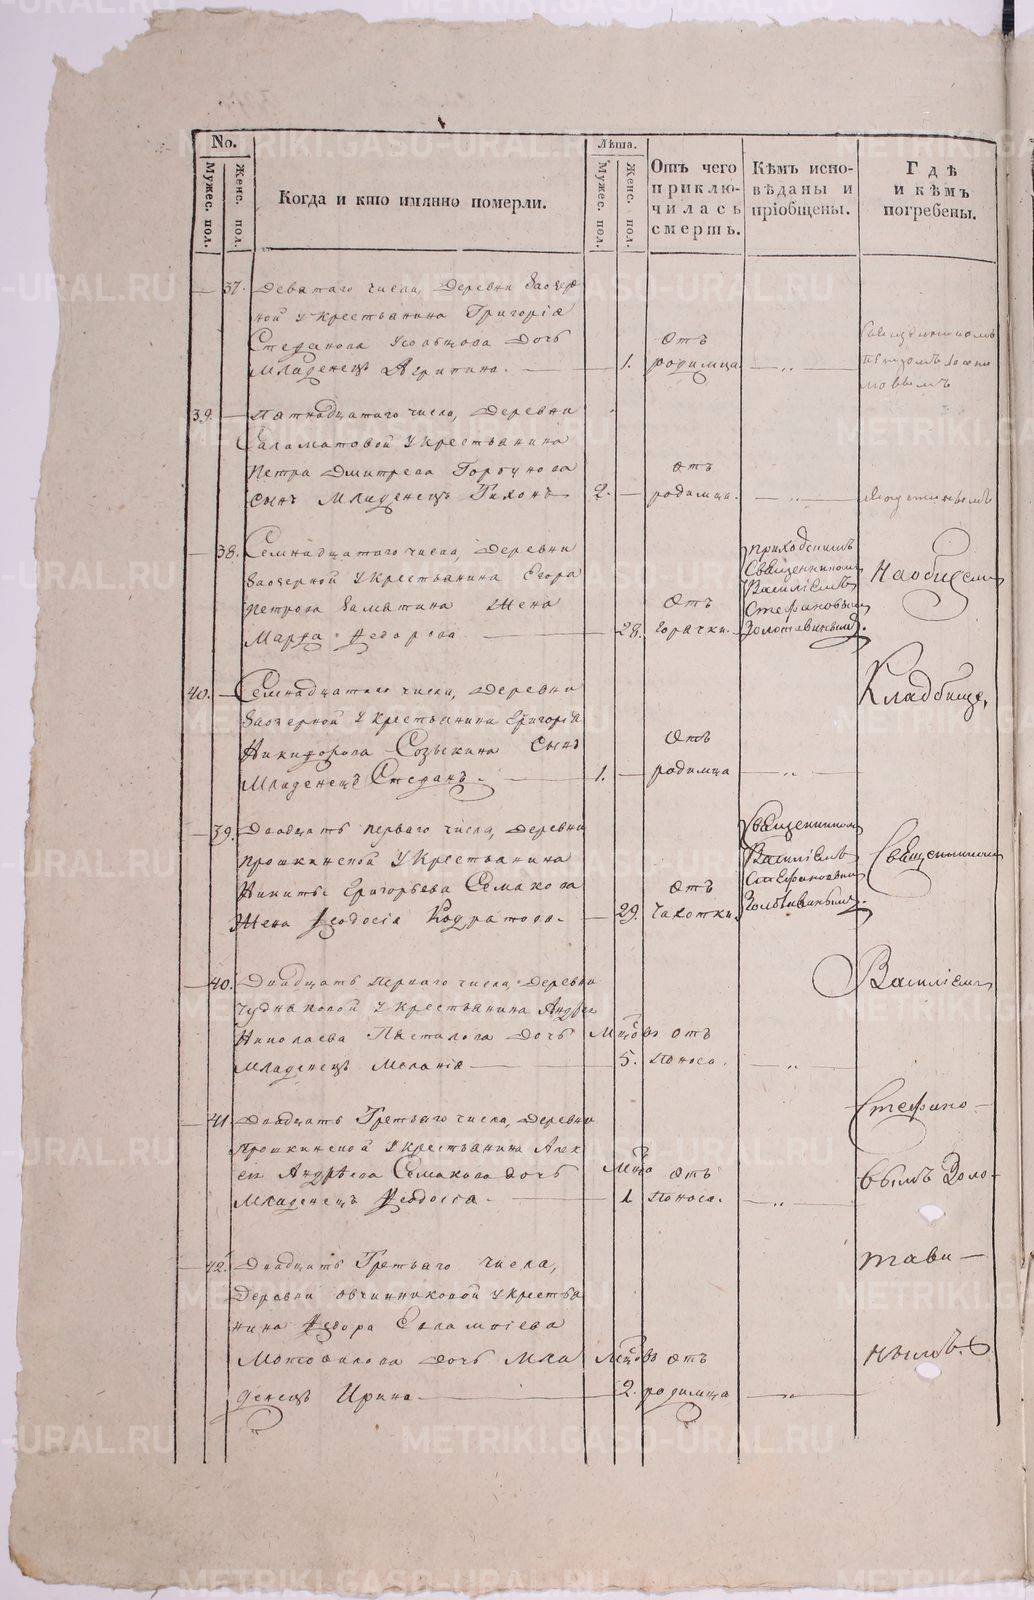 No.
Мужес. пол.
Женс. пол.
Когда и кто имянно померли.
Лѣта.
Мужес. пол.
Женс. пол.
Отъ чего
приклю-
чилась
смерть.
Кѣмъ испо-
вѣданы и
пріобщены.
Гдѣ
и кѣмъ
погребены.
— 37. Девятаго числа, Деревни Заозер
ной у крестьянина Григорія
Стефанова дочь отъ
младенецъ Агрипина. — 1. родимца — „ —
39. — Пятнадцатаго числа, Деревни
Саламатовой у крестьянина
Петра Дмитрева Горбунова отъ
сынъ младенецъ Тихонъ 2. — родимца. — „ —
— 38. Семнадцатаго числа, Деревни
Заозерной у крестьянина Егора
Петрова Замятина жена отъ
Марфа Федорова — 28. горячки.
приходскимъ
Священникомъ
Василіемъ
Стефановым
Золотавинымъ.
На общем
40. — Семнадцатаго числа, Деревни
Заозерной у крестьянина Григорія
Никифорова Созыкина сынъ отъ
младенецъ Стефанъ. — 1. — родимца — „ —
Кладбище,
— 39. Двадцать перваго числа, Деревни
Прошкинской у крестьянина
Никиты Григорьева Семакова отъ
жена Феодосія Кодратова. — 29. чахотки.
Священником
Василіемъ
Стефановым
Золотавинымъ.
Священником
— 40. Двадцать перваго числа, Деревни
Чудиновой у крестьянина Андрея
Николаева дочь Мцовъ отъ
младенецъ Меланія — 5. поноса. „
Василіемъ
— 41. Двадцать Третьяго числа, Деревни
Прошкинской у крестьянина Алек
сея Андрѣева Семакова дочь отъ
младенецъ Феодосія. — 1 поноса. — „ —
Стефано-
вымъ Золо-
— 42. Двадцать Третьяго числа,
Деревни Овчинниковой у крестья
нина Федора Евлампіева
Мотовилова дочь мла Мцовъ отъ
денецъ Ирина. — 2. родимца — „ —
тави-
нымъ.
METRIKI.GASO-URAL.RU